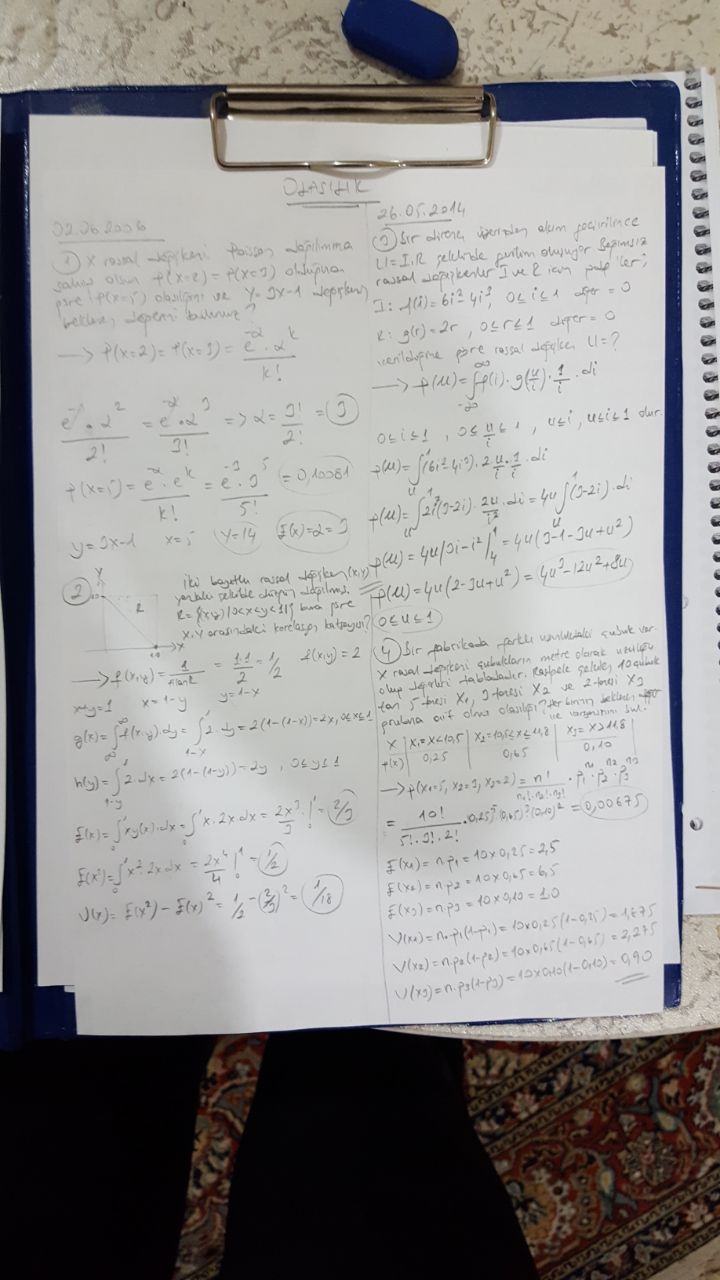 OLASILIK
02.06.2006
① X rassal değişkeni Poisson dağılımına
sahip olsun P(x=2) = P(x=3) olduğuna
göre P(x=5) olasılığını ve Y=3X-1 değişkeni
beklenen değerini bulunuz?
→ P(x=2) = P(x=3) = e^-α . α^k / k!
e^-α . α^2 / 2! = e^-α . α^3 / 3! => α = 3!/2! = 3
P(x=5) = e^-α . α^k / k! = e^-3 . 3^5 / 5! = 0,10081
y = 3x-1 x=5 Y=14 E(x)=α=3
② iki boyutlu rassal değişken (x,y)
Y
R
1.0
X
şekilde düzgün dağılmış.
R = {(x,y) | 0<x<y<1} buna göre
X,Y arasındaki korelasyon katsayısı?
→ f(x,y) = 1/Alan R = 1.1/2 = 1/2 f(x,y) = 2
x+y=1 x=1-y y=1-x
g(x) = ∫f(x,y).dy = ∫2.dy = 2(1-(1-x)) = 2x, 0≤x≤1
h(y) = ∫2.dx = 2(1-(1-y)) = 2y , 0≤y≤1
E(x) = ∫x g(x).dx = ∫x.2x dx = 2x^3/3 |= 2/3
E(x²) = ∫x².2x dx = 2x^4/4 | = 1/2
V(x) = E(x²) - E(x)² = 1/2 - (2/3)² = 1/18
26.05.2014
③ Bir direnç üzerinden akım geçirilince
U=I.R şeklinde gerilim oluşuyor. Bağımsız
rassal değişkenler I ve R için pdf'ler;
I: f(i) = 6i² 4i³, 0≤i≤1 diğer = 0
R: g(r) = 2r , 0≤r≤1 diğer = 0
verildiğine göre rassal değişken U=?
→ P(u) = ∫f(i).g(u/i).1/i.di
0≤i≤1 , 0≤u/i≤1 , u≤i , u≤i≤1 olur.
P(u) = ∫(6i²-4i³).2u/i.1/i.di
P(u) = ∫2i²(3-2i).2u/i².di = 4u∫(3-2i).di
P(u) = 4u|3i-i²| = 4u(3-1-3u+u²)
P(u) = 4u(2-3u+u²) = 4u³-12u²+8u
0≤u≤1
④ Bir fabrikada farklı uzunluktaki çubuk var.
X rassal değişkeni çubukların metre olarak uzunluğu
olup değerleri tabloladır. Rastgele çekilen 10 çubuk
tan 5 tanesi X1, 3 tanesi X2 ve 2 tanesi X3
grubuna ait olma olasılığı? her birinin beklenen değer
ve varyansını bul.
X | X1=X<10,5 | X2=10,5≤X≤11,8 | X3=X>11,8
P(x) | 0,25 | 0,65 | 0,10
→ P(x1=5, x2=3, x3=2) = n! / n1!.n2!.n3! . p1^n1 . p2^n2 . p3^n3
= 10! / 5!.3!.2! . 0,25^5 . (0,65)^3 . (0,10)^2 = 0,00675
E(x1) = n.p1 = 10x0,25 = 2,5
E(x2) = n.p2 = 10x0,65 = 6,5
E(x3) = n.p3 = 10x0,10 = 1.0
V(x1) = n.p1(1-p1) = 10x0,25(1-0,25) = 1,875
V(x2) = n.p2(1-p2) = 10x0,65(1-0,65) = 2,275
V(x3) = n.p3(1-p3) = 10x0,10(1-0,10) = 0,90